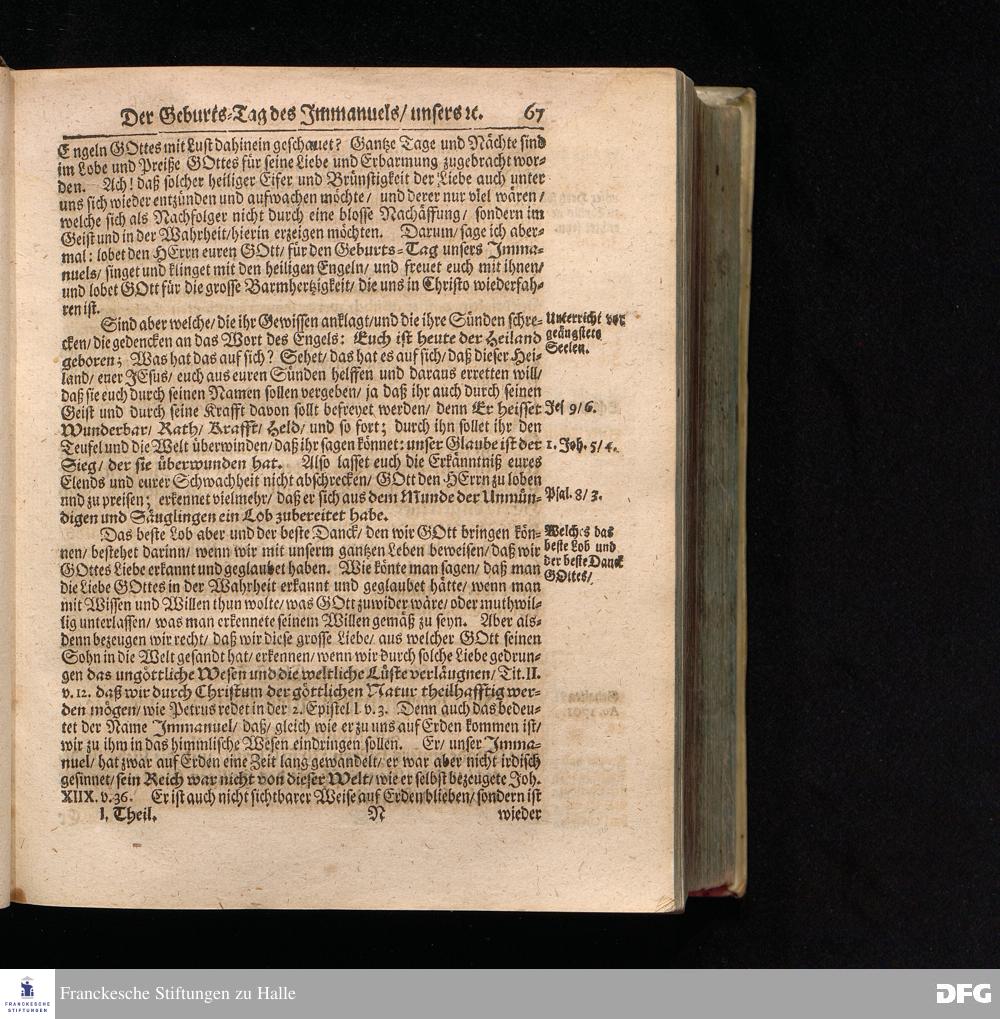 Der Geburts-Tag des Immanuels/ unsers ꝛc. 67
Engeln GOttes mit Lust dahinein geschauet? Gantze Tage und Nächte sind
im Lobe und Preiße GOttes für seine Liebe und Erbarmung zugebracht wor-
den. Ach! daß solcher heiliger Eifer und Brünstigkeit der Liebe auch unter
uns sich wieder entzünden und aufwachen möchte/ und derer nur viel wären/
welche sich als Nachfolger nicht durch eine blosse Nachäffung/ sondern im
Geist und in der Wahrheit/ hierin erzeigen möchten. Darum/ sage ich aber-
mal: lobet den HErrn euren GOtt/ für den Geburts-Tag unsers Imma-
nuels/ singet und klinget mit den heiligen Engeln/ und freuet euch mit ihnen/
und lobet GOtt für die grosse Barmhertzigkeit/ die uns in Christo wiederfah-
ren ist.
Sind aber welche/ die ihr Gewissen anklagt/ und die ihre Sünden schre-
cken/ die gedencken an das Wort des Engels: Euch ist heute der Heiland
geboren; Was hat das auf sich? Sehet/ das hat es auf sich/ daß dieser Hei-
land/ ener JEsus/ euch aus euren Sünden helffen und daraus erretten will/
daß sie euch durch seinen Namen sollen vergeben/ ja daß ihr auch durch seinen
Geist und durch seine Krafft davon sollt befreyet werden/ denn Er heisset
Wunderbar/ Rath/ Krafft/ Held/ und so fort; durch ihn sollet ihr den
Teufel und die Welt überwinden/ daß ihr sagen könnet: unser Glaube ist der
Sieg/ der sie überwunden hat. Also lasset euch die Erkänntniß eures
Elends und eurer Schwachheit nicht abschrecken/ GOtt den HErrn zu loben
und zu preisen; erkennet vielmehr/ daß er sich aus dem Munde der Unmün-
digen und Säuglingen ein Lob zubereitet habe.
Das beste Lob aber und der beste Danck/ den wir GOtt bringen kön-
nen/ bestehet darinn/ wenn wir mit unserm gantzen Leben beweisen/ daß wir
GOttes Liebe erkannt und geglaubet haben. Wie könte man sagen/ daß man
die Liebe GOttes in der Wahrheit erkannt und geglaubet hätte/ wenn man
mit Wissen und Willen thun wolte/ was GOtt zuwider wäre/ oder muthwil-
lig unterlassen/ was man erkennete seinem Willen gemäß zu seyn. Aber als-
denn bezeugen wir recht/ daß wir diese grosse Liebe/ aus welcher GOtt seinen
Sohn in die Welt gesandt hat/ erkennen/ wenn wir durch solche Liebe gedrun-
gen das ungöttliche Wesen und die weltliche Lüste verläugnen/ Tit. II.
v. 12. daß wir durch Christum der göttlichen Natur theilhafftig wer-
den mögen/ wie Petrus redet in der 2. Epistel I. v. 3. Denn auch das bedeu-
tet der Name Immanuel/ daß/ gleich wie er zu uns auf Erden kommen ist/
wir zu ihm in das himmlische Wesen eindringen sollen. Er/ unser Imma-
nuel/ hat zwar auf Erden eine Zeit lang gewandelt/ er war aber nicht irdisch
gesinnet/ sein Reich war nicht von dieser Welt/ wie er selbst bezeugete Joh.
XIIX. v. 36. Er ist auch nicht sichtbarer Weise auf Erden blieben/ sondern ist
I. Theil. N wieder
Unterricht vor
geängstete
Seelen.
Jes 9/ 6.
1. Joh. 5/ 4.
Psal. 8/ 3.
Welches das
beste Lob und
der beste Danck
GOttes/
FRANCKESCHE
STIFTUNGEN
Franckesche Stiftungen zu Halle
DFG